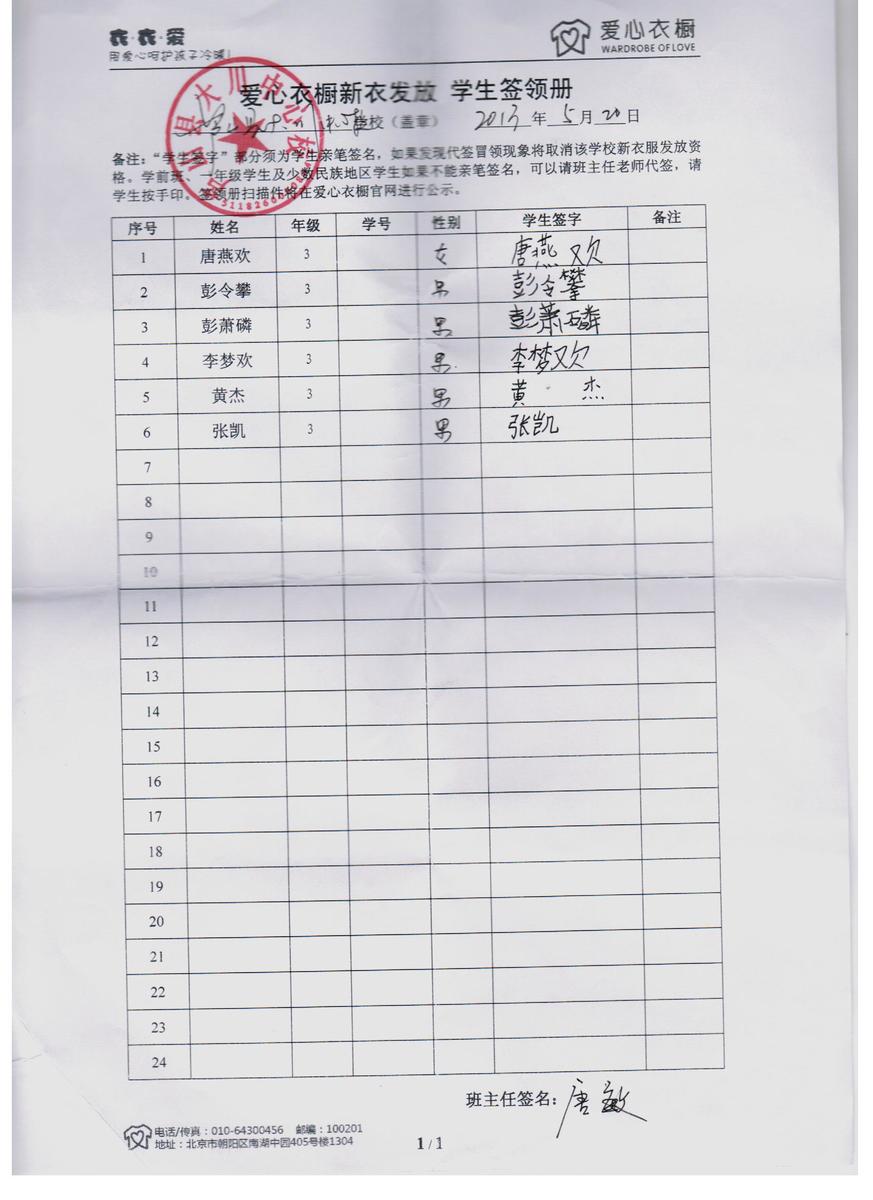 衣·衣·爱
用爱心呵护孩子冷暖!
爱心衣橱
WARDROBE OF LOVE
爱心衣橱新衣发放 学生签领册
学校（盖章） 2013 年 5 月 20 日
县大川中心校
备注：“学生签字”部分须为学生亲笔签名，如果发现代签冒领现象将取消该学校新衣服发放资
格。学前班、一年级学生及少数民族地区学生如果不能亲笔签名，可以请班主任老师代签，请
学生按手印。签领册扫描件将在爱心衣橱官网进行公示。
序号 姓名 年级 学号 性别 学生签字 备注
1 唐燕欢 3 女 唐燕欢
2 彭令攀 3 男 彭令攀
3 彭萧磷 3 男 彭萧磷
4 李梦欢 3 男 李梦欢
5 黄杰 3 男 黄杰
6 张凯 3 男 张凯
7
8
9
10
11
12
13
14
15
16
17
18
19
20
21
22
23
24
班主任签名：唐敏
电话/传真：010-64300456 邮编：100201
地址：北京市朝阳区南湖中园405号楼1304
1 / 1